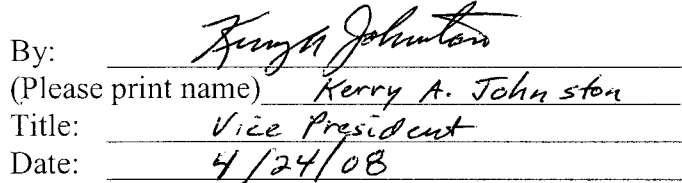 By: Kerry A Johnston
(Please print name) Kerry A. Johnston
Title: Vice President
Date: 4/24/08